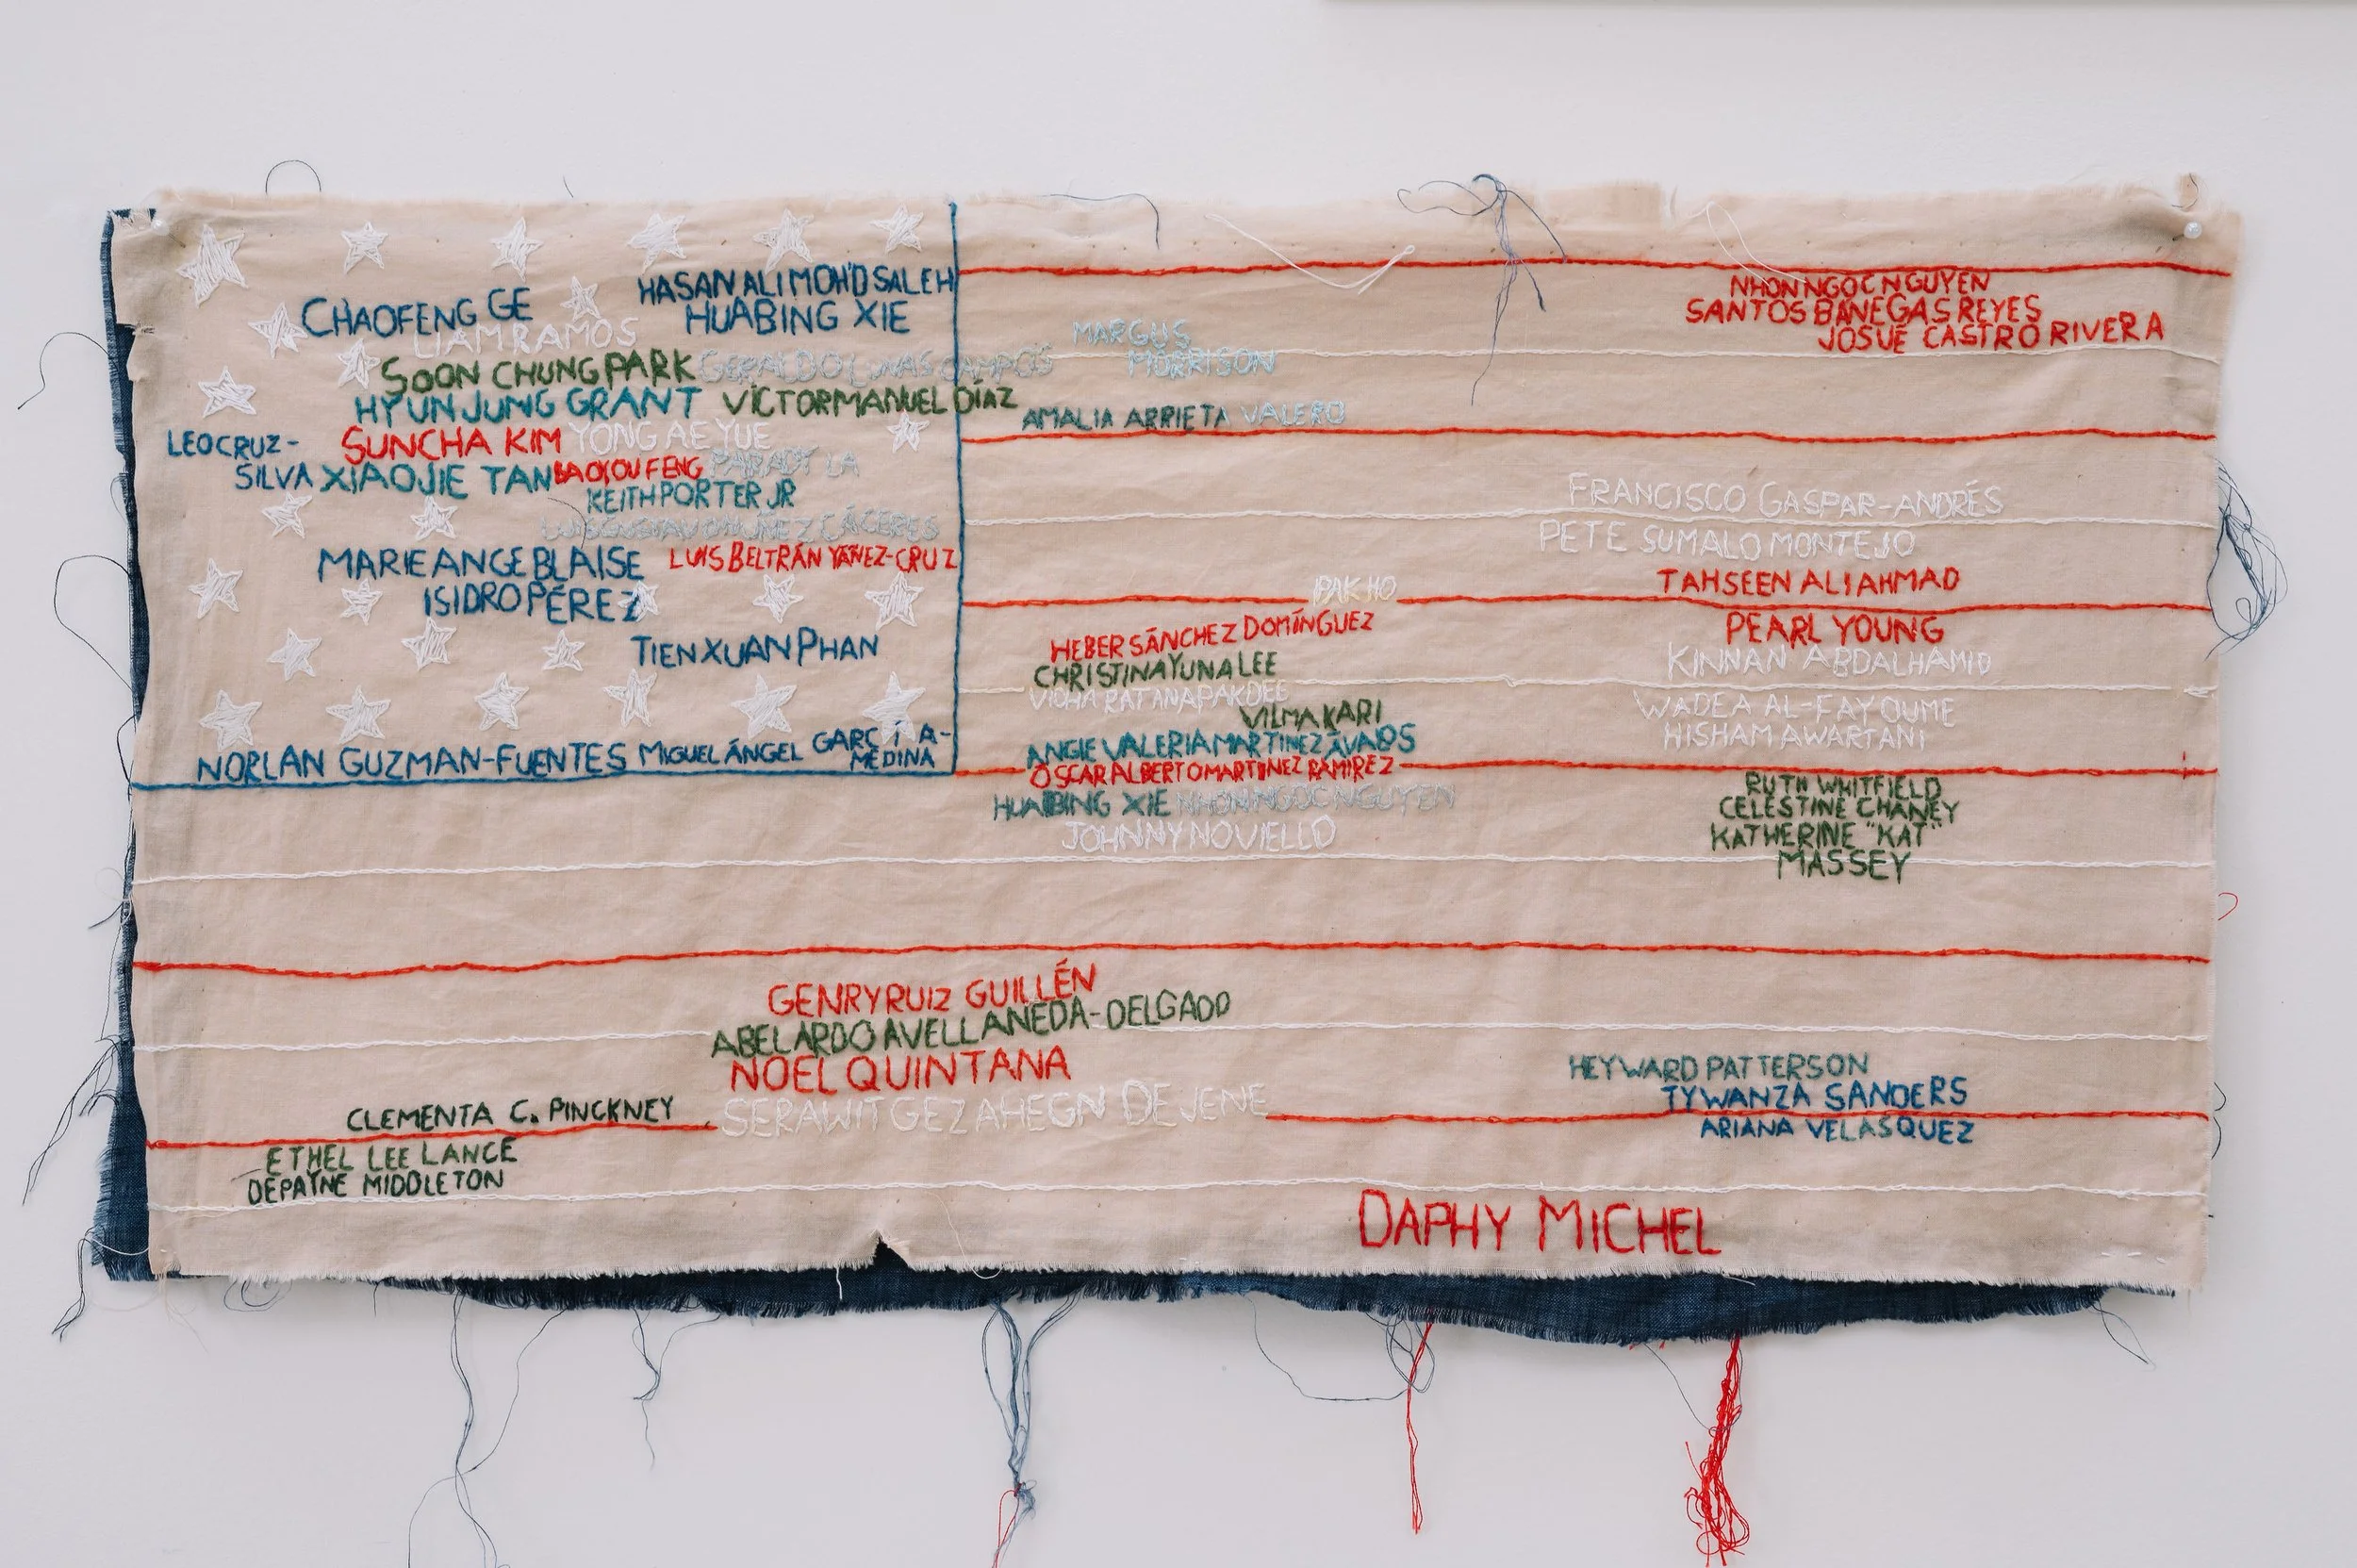 HASAN ALI MOH'D SALEH
CHAOFENG GE
HUABING XIE
LIAM RAMOS
SOON CHUNG PARK
GERALDO LUNAS CAMPOS
HYUN JUNG GRANT
VÍCTOR MANUEL DÍAZ
LEO CRUZ-
SILVA
SUNCHA KIM
YONG AE YUE
XIAOJIE TAN
DAOYOU FENG
PARADY LA
KEITH PORTER JR
LUIS GUSTAVO NÚÑEZ CÁCERES
MARIE ANGE BLAISE
LUIS BELTRÁN YÁÑEZ-CRUZ
ISIDRO PÉREZ
TIEN XUAN PHAN
NORLAN GUZMAN-FUENTES
MIGUEL ÁNGEL GARCÍA-
MEDINA
MARGUS
MORRISON
AMALIA ARRIETA VALERO
PAK HO
HEBER SÁNCHEZ DOMÍNGUEZ
CHRISTINA YUNA LEE
VICHA RATANAPAKDEE
VILMA KARI
ANGIE VALERIA MARTINEZ ÁVALOS
ÓSCAR ALBERTO MARTINEZ RAMIREZ
HUABING XIE
NHON NGOC NGUYEN
JOHNNY NOVIELLO
NHON NGOC NGUYEN
SANTOS BANEGAS REYES
JOSUÉ CASTRO RIVERA
FRANCISCO GASPAR-ANDRÉS
PETE SUMALO MONTEJO
TAHSEEN ALI AHMAD
PEARL YOUNG
KINNAN ABDALHAMID
WADEA AL-FAYOUME
HISHAM AWARTANI
RUTH WHITFIELD
CELESTINE CHANEY
KATHERINE "KAT"
MASSEY
GENRY RUIZ GUILLÉN
ABELARDO AVELLANEDA-DELGADO
NOEL QUINTANA
SERAWIT GEZAHEGN DEJENE
CLEMENTA C. PINCKNEY
ETHEL LEE LANCE
DEPAYNE MIDDLETON
HEYWARD PATTERSON
TYWANZA SANDERS
ARIANA VELASQUEZ
DAPHY MICHEL